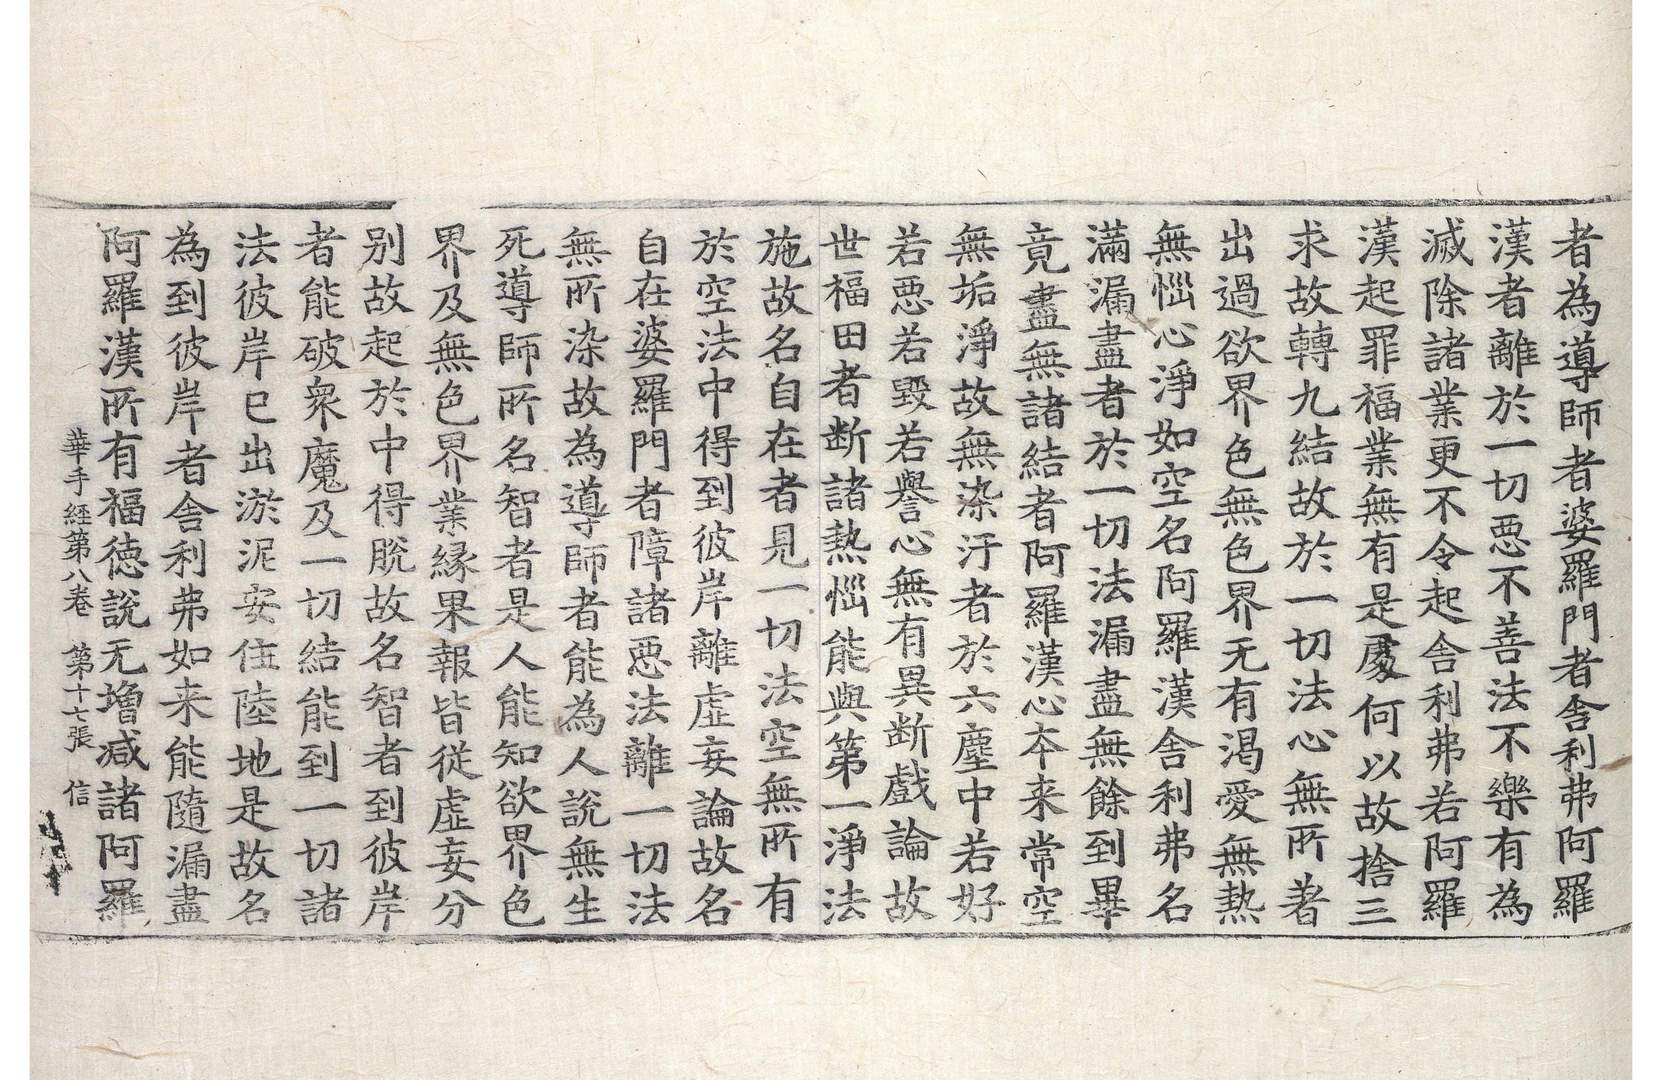 者為導師者婆羅門者舎利弗阿羅
漢者離於一切悪不善法不樂有為
滅除諸業更不令起舎利弗若阿羅
漢起罪福業無有是處何以故捨三
求故轉九結故於一切法心無所著
出過欲界色無色界无有渴愛無熱
無惱心淨如空名阿羅漢舎利弗名
滿漏盡者於一切法漏盡無餘到畢
竟盡無諸結者阿羅漢心夲来常空
無垢淨故無染汙者於六塵中若好
若悪若毀若譽心無有異断戲論故
世福田者断諸熱惱能與第一淨法
施故名自在者見一切法空無所有
於空法中得到彼岸離虛妄論故名
自在婆羅門者障諸悪法離一切法
無所染故為導師者能為人說無生
死導師所名智者是人能知欲界色
界及無色界業縁果報皆從虛妄分
别故起於中得脫故名智者到彼岸
者能破衆魔及一切結能到一切諸
法彼岸已出淤泥安住陸地是故名
為到彼岸者舎利弗如来能隨漏盡
阿羅漢所有福徳說无增减諸阿羅
華手經第八卷　第十七張　信